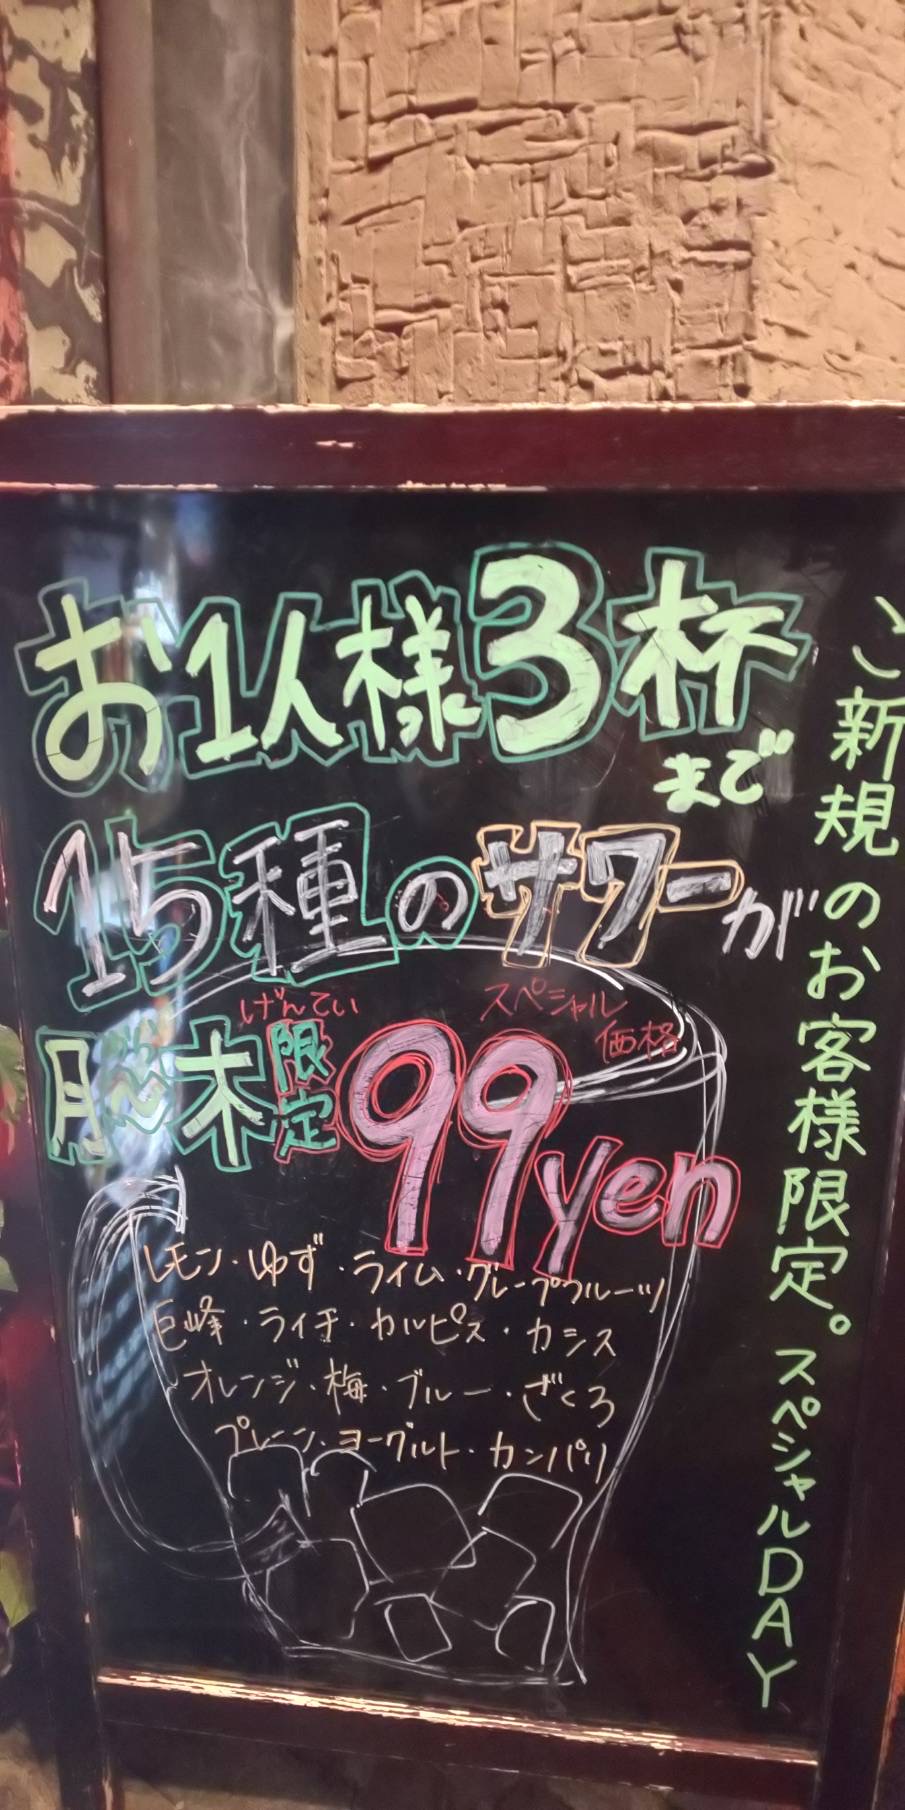 お1人様3杯
まで
15種のサワーが
げんてい
月〜木限定
スペシャル
価格
99yen
レモン・ゆず・ライム・グレープフルーツ
巨峰・ライチ・カルピス・カシス
オレンジ・梅・ブルー・ざくろ
プレーン・ヨーグルト・カンパリ
ご新規のお客様限定。スペシャルDAY